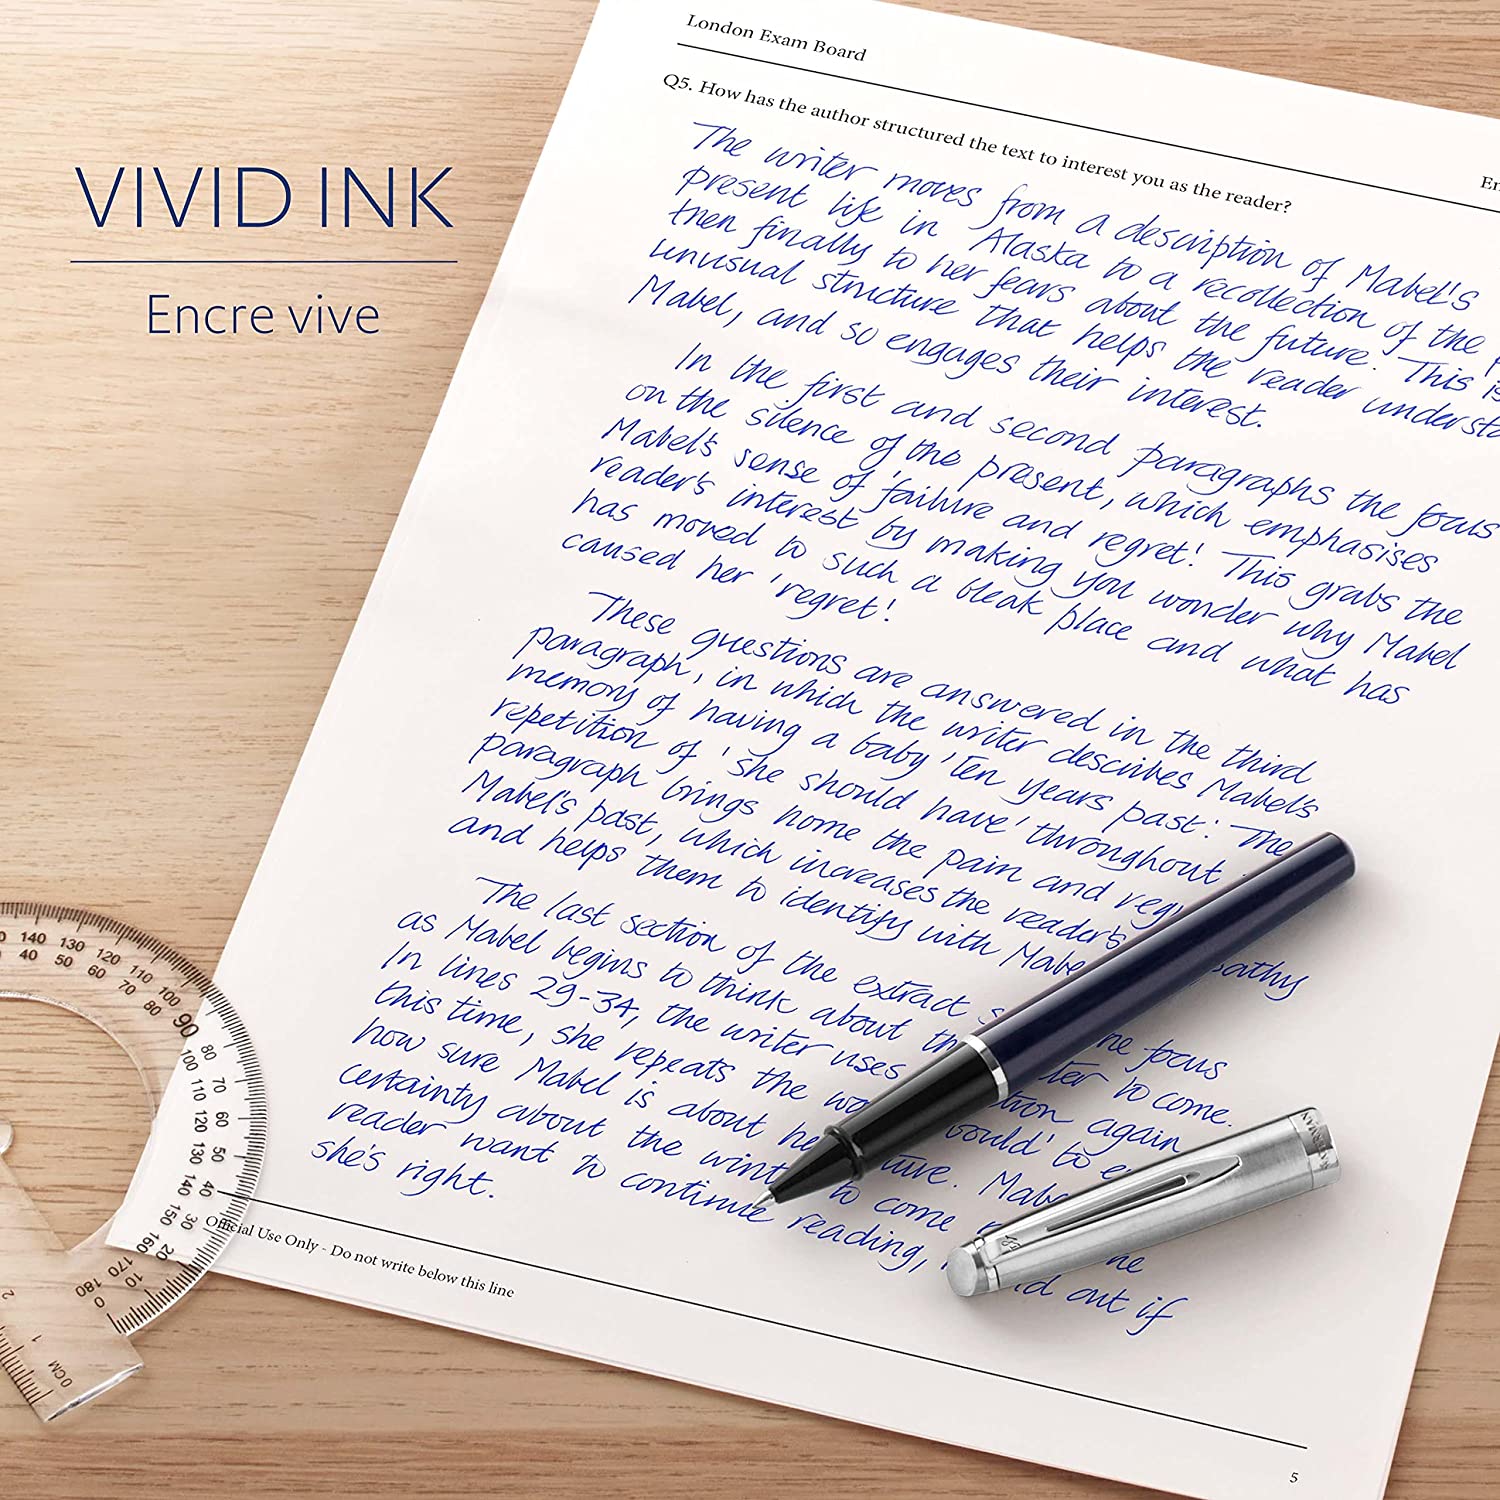 VIVID INK
Encre vive
London Exam Board
Q5. How has the author structured the text to interest you as the reader?
The writer moves from a description of Mabel's
present life in Alaska to a recollection of the
then finally to her fears about the future. This is
unusual structure that helps the reader
Mabel, and so engages their interest.
In the first and second paragraphs the focus
on the silence of the present, which emphasises
Mabel's sense of 'failure and regret'. This grabs the
reader's interest by making you wonder why Mabel
has moved to such a bleak place and what has
caused her 'regret'.
These questions are answered in the third
paragraph, in which the writer describes Mabel's
memory of having a baby 'ten years past'. The
repetition of 'she should have' throughout
paragraph brings home the pain and
Mabel's past, which increases the reader's
and helps them to identify with
The last section of the extract focus
as Mabel begins to think about to come.
In lines 29-34, the writer uses again
this time, she repeats the to
how sure Mabel is about
certainty about the to come
reader want to continue reading, out if
she's right.
Official Use Only - Do not write below this line
5
WATERMAN
140 130 120 110 100 90 80 70 60 50 40 30 20 10 0
40 50 60 70 80 100 110 120 130 140 150 160 170 180
0CM 1 2